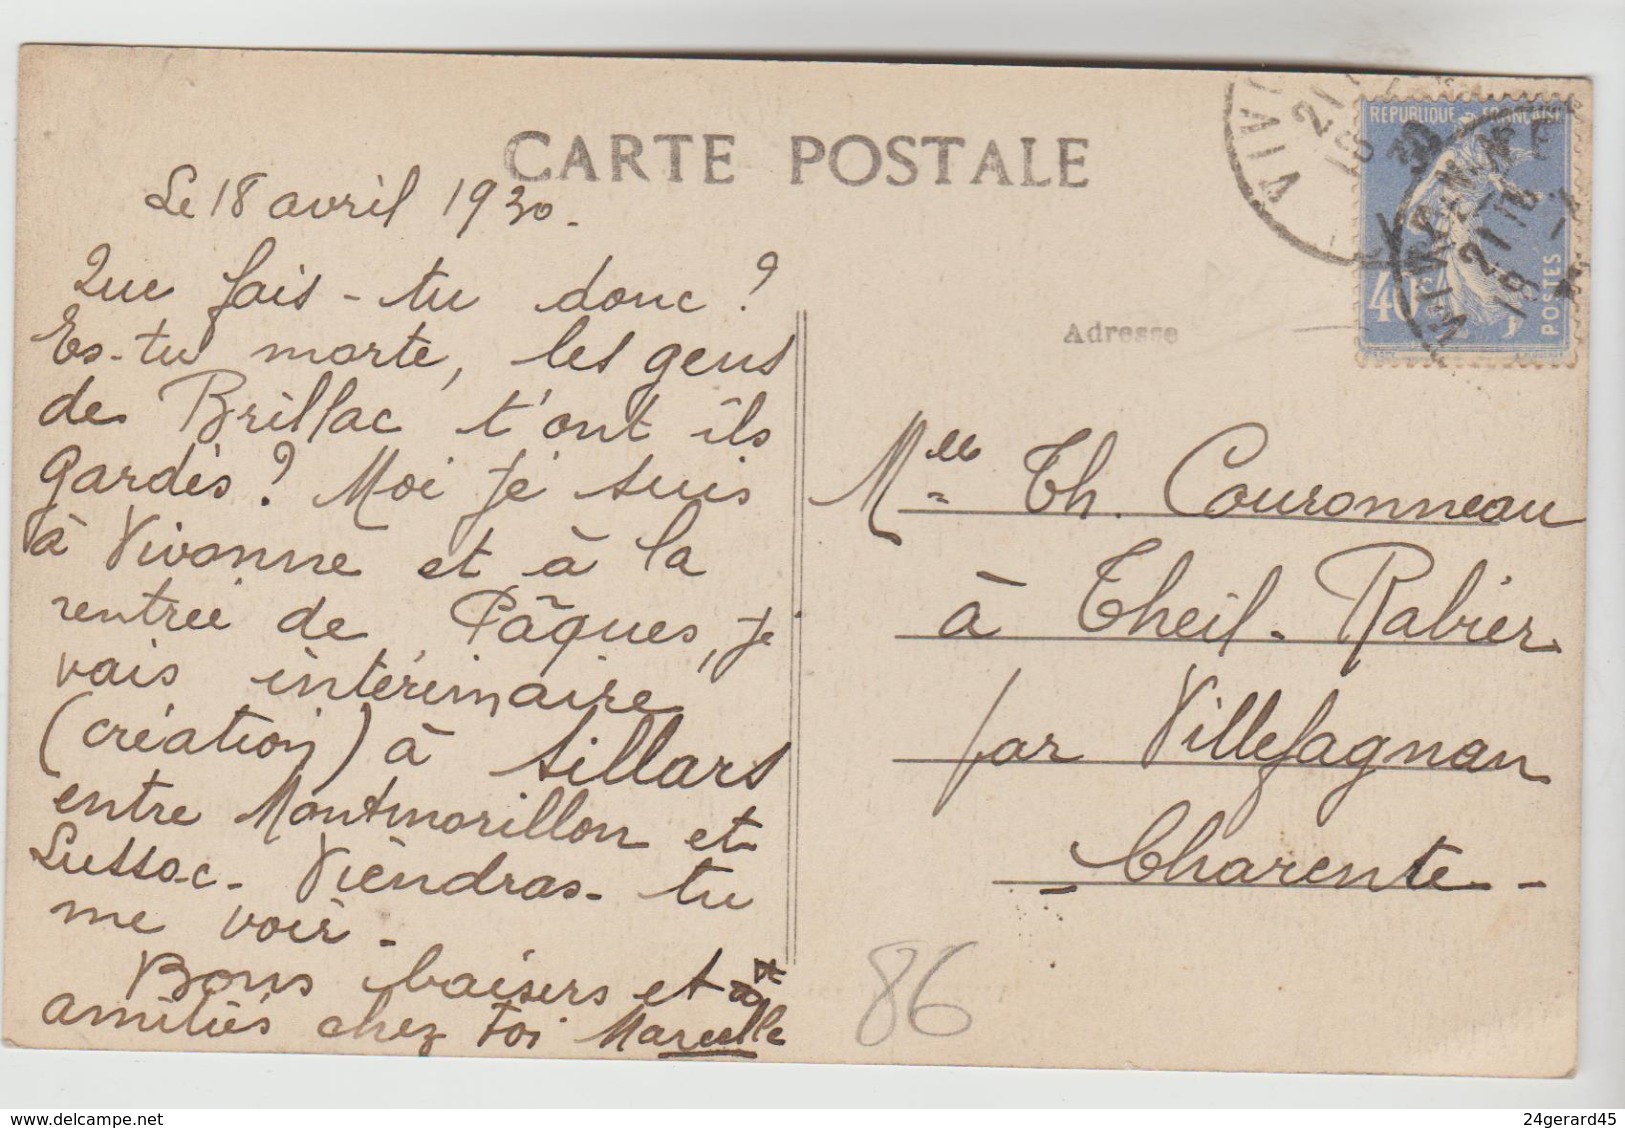 CARTE POSTALE
Le 18 avril 1930.
Que fais-tu donc ?
Es-tu morte, les gens
de Brillac t'ont ils
gardés ? Moi je suis
à Vivonne et à la
rentrée de Pâques, je
vais intérimaire
(création) à Sillars
entre Montmorillon et
Lussac. Viendras-tu
me voir.
Bons baisers et
amitiés chez toi Marcelle
RÉPUBLIQUE FRANÇAISE
40c
POSTES
Adresse
Mlle Th. Couronneau
à Theil-Rabier
par Villefagnan
Charente
86
www.delcampe.net
24gerard45